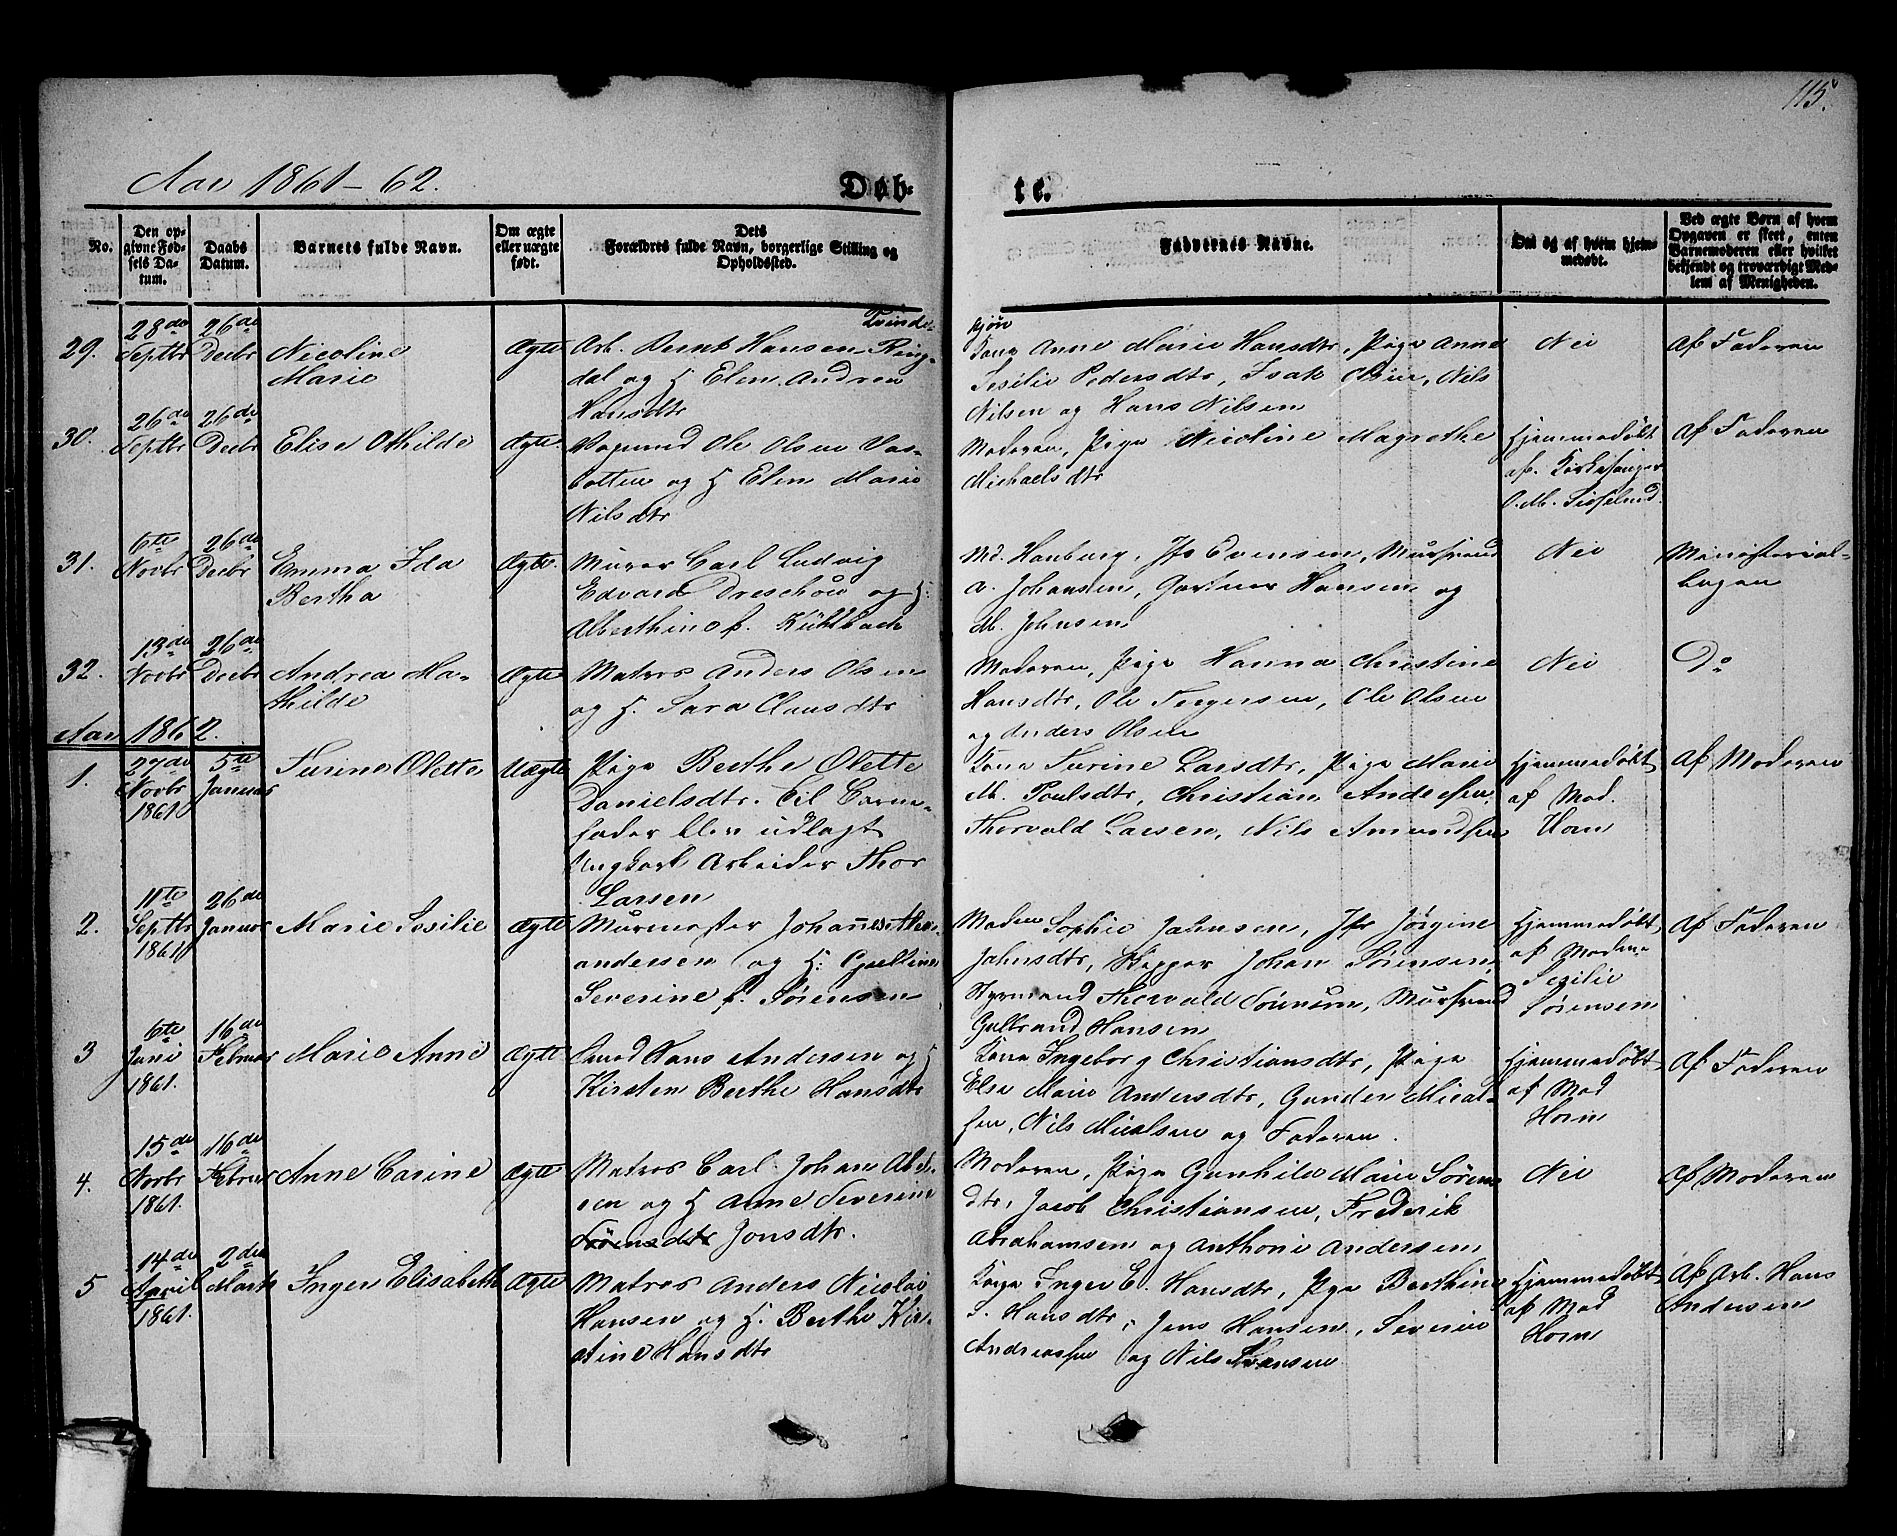 115.
Aar 1861-62.
Døb-
te.
No.
Den op-
givne Fød-
sels Da-
tum.
Daabs
Datum.
Barnets fulde Navn.
Om ægte
eller uægte
født.
Dets
Forældres fulde Navn, borgerlige Stilling og
Opholdssted.
Faddernes Navne.
Om og af hvem hjem-
medøbt.
Ved ægte Børn af hvem
Opgaven er skeet, enten
Barnemoderen eller hvilket
bekjendt og troværdigt Med-
lem af Menigheden.
29.
28de
Septbr
26de
Decbr
Nicoline
Marie
Ægte
Arb. Bernt Hansen Ring-
dal og H Elen Andrea
Hansdtr
Kone Anne Marie Hansdtr, Pige Anne
Sesilie Pedersdtr, Isak Nils
Nilsen og Hans Nilsen
Nei
Af Faderen
30.
26de
Septbr
26de
Decbr
Elise Othilde
Ægte
Ole Olsen Vas-
botten og H Elen Marie
Nilsdtr
Moderen, Pige Nicoline Magrethe
Michaelsdtr
Hjemmedøbt
af Kirkesanger
O. M.
Af Faderen
31.
6te
Novbr
26de
Decbr
Emma Ida
Bertha
Ægte
Murer Carl Ludvig
Edvard Dreschow og H:
Albertine f. Kühlbach
Md. Hanburg, Jfr Evensen, Mursvend
A. Johansen, Gartner Hansen og
M. Johnsen
Nei
Ministerial-
bogen
32.
13de
Novbr
26de
Decbr
Andrea Ma-
thilde
Ægte
Matros Anders Olsen
og H. Sara Clausdtr
Moderen, Pige Hanna Christine
Hansdtr, Ole Torgersen, Ole Olsen
og Anders Olsen
Nei
Do
Aar 1862.
1.
27de
Novbr
1861
5te
Januar
Turine Olette
Uægte
Pige Berthe Olette
Danielsdtr. Til Barne-
fader blev udlagt
Ungkarl Arbeider Thor
Larsen
Kone Turine Larsdtr, Pige Marie
M. Poulsdtr, Christian Andersen,
Thorvald Larsen, Nils Amundsen
Hjemmedøbt
af Mad.
Horn
Af Moderen
2.
11te
Septbr
1861
26de
Januar
Marie Sesilie
Ægte
Murmester Johannes Alex-
andersen og H:
Severine f. Sørensen
Madm Sophie Jahnsen, Jfr Jørgine
Jahnsdtr, Skipper Johan Sørensen,
Styrmand Thorvald Sørensen, Mursvend
Gulbrand Hansen
Hjemmedøbt
af Madme
Sesilie
Sørensen
Af Faderen
3
6te
Juni
1861.
16de
Februar
Marie Anne
Ægte
Smed Hans Andersen og H
Kirsten Berthe Hansdtr
Kone Ingeborg Christiansdtr, Pige
Else Marie Andersdtr, Gunder Mical-
sen, Nils Micalsen og Faderen.
Hjemmedøbt
af Mad
Horn
Af Faderen
4.
15de
Novbr
1861.
16de
Februar
Anne Carine
Ægte
Matros Carl Johan
og H Anne Severine
Sørensdtr Jonsdtr.
Moderen, Pige Gunhild Marie Sørens-
dtr, Jacob Christiansen, Frederik
Abrahamsen og Anthoni Andersen,
Nei
Af Moderen
5
14de
April
1861.
2den
Marts
Inger Elisabeth
Ægte
Matros Anders Nicolai
Hansen og H. Berthe Kir-
stine Hansdtr
Kone Inger E. Hansdtr, Pige Berthine
S. Hansdtr, Jens Hansen, Severin
Andreassen og Nils Hansen
Hjemmedøbt
af Mad
Horn
Af Arb. Hans
Andersen